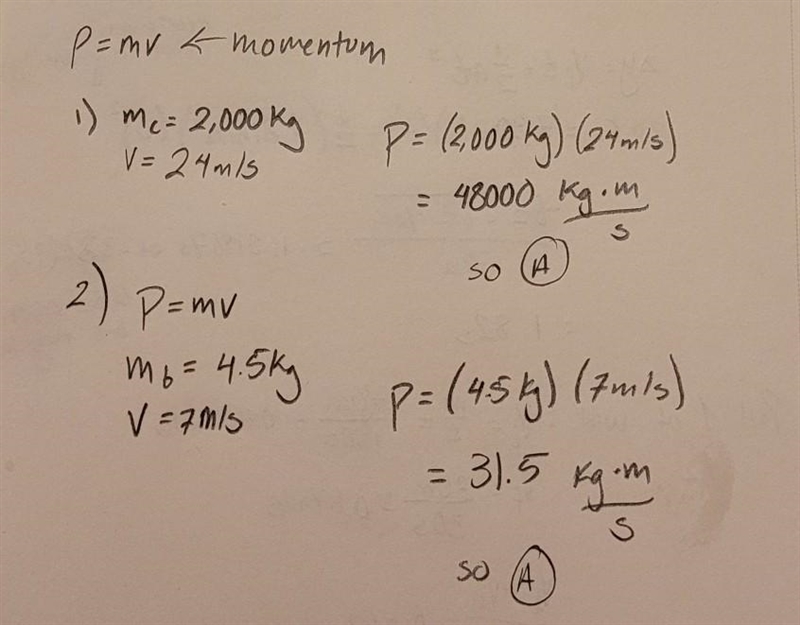 P = mv ← momentum
1) mc = 2,000 Kg
V = 24 m/s
P = (2,000 Kg) (24 m/s)
= 48000 Kg·m/s
so A
2) P = mv
mb = 4.5 Kg
V = 7 m/s
P = (4.5 Kg) (7 m/s)
= 31.5 Kg·m/s
so A